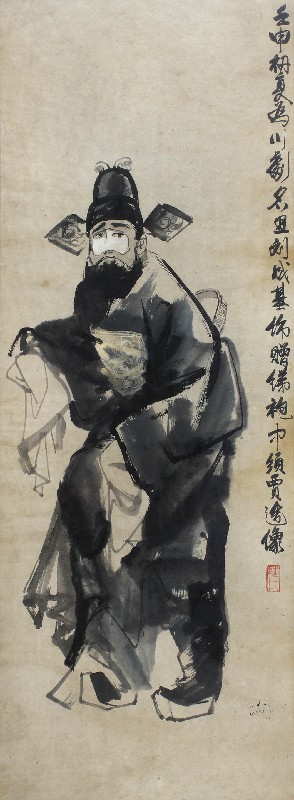 壬申初夏為川劇名丑刘成基饰贈绨袍中須賈造像